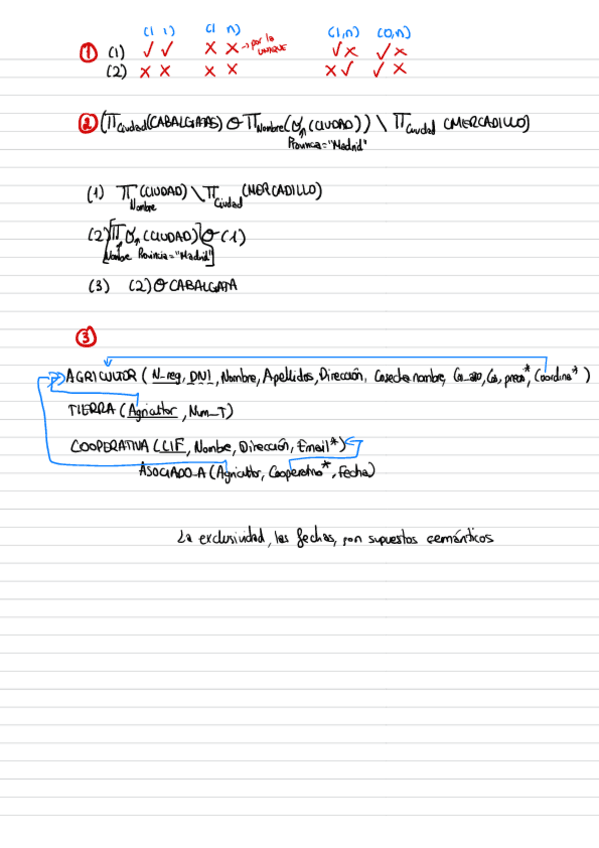 (1 1) (1 n) (1,n) (0,n)
① (1) ✓ ✓ ✗ ✗ → por la UNIQUE ✓ ✗ ✓ ✗
(2) ✗ ✗ ✗ ✗ ✗ ✓ ✓ ✗
② (Π Ciudad (CABALGATAS) Θ Π Nombre (σ Provincia="Madrid" (CIUDAD))) \ Π Ciudad (MERCADILLO)
(1) Π Nombre (CIUDAD) \ Π Ciudad (MERCADILLO)
(2) [Π Nombre σ Provincia="Madrid" (CIUDAD)] Θ (1)
(3) (2) Θ CABALGATA
③
AGRICULTOR (N_reg, DNI, Nombre, Apellidos, Dirección, nombre, Coordina*)
TIERRA (Agricultor, Num_T)
COOPERATIVA (CIF, Nombre, Dirección, Email*)
ASOCIADO_A (Agricultor, Cooperativa*, Fecha)
La exclusividad, las fechas, son supuestos semánticos